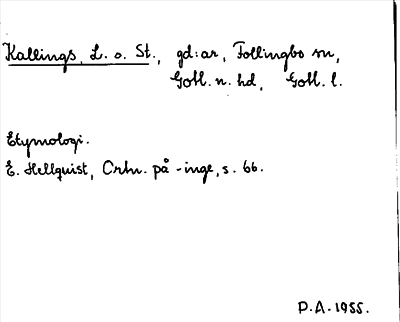 Kallings, L. o. St., gd:ar, Follingbo sn,
Gotl. n. hd, Gotl. l.
Etymologi.
E. Hellquist, Ortn. på -inge, s. 66.
P.A. 1955.